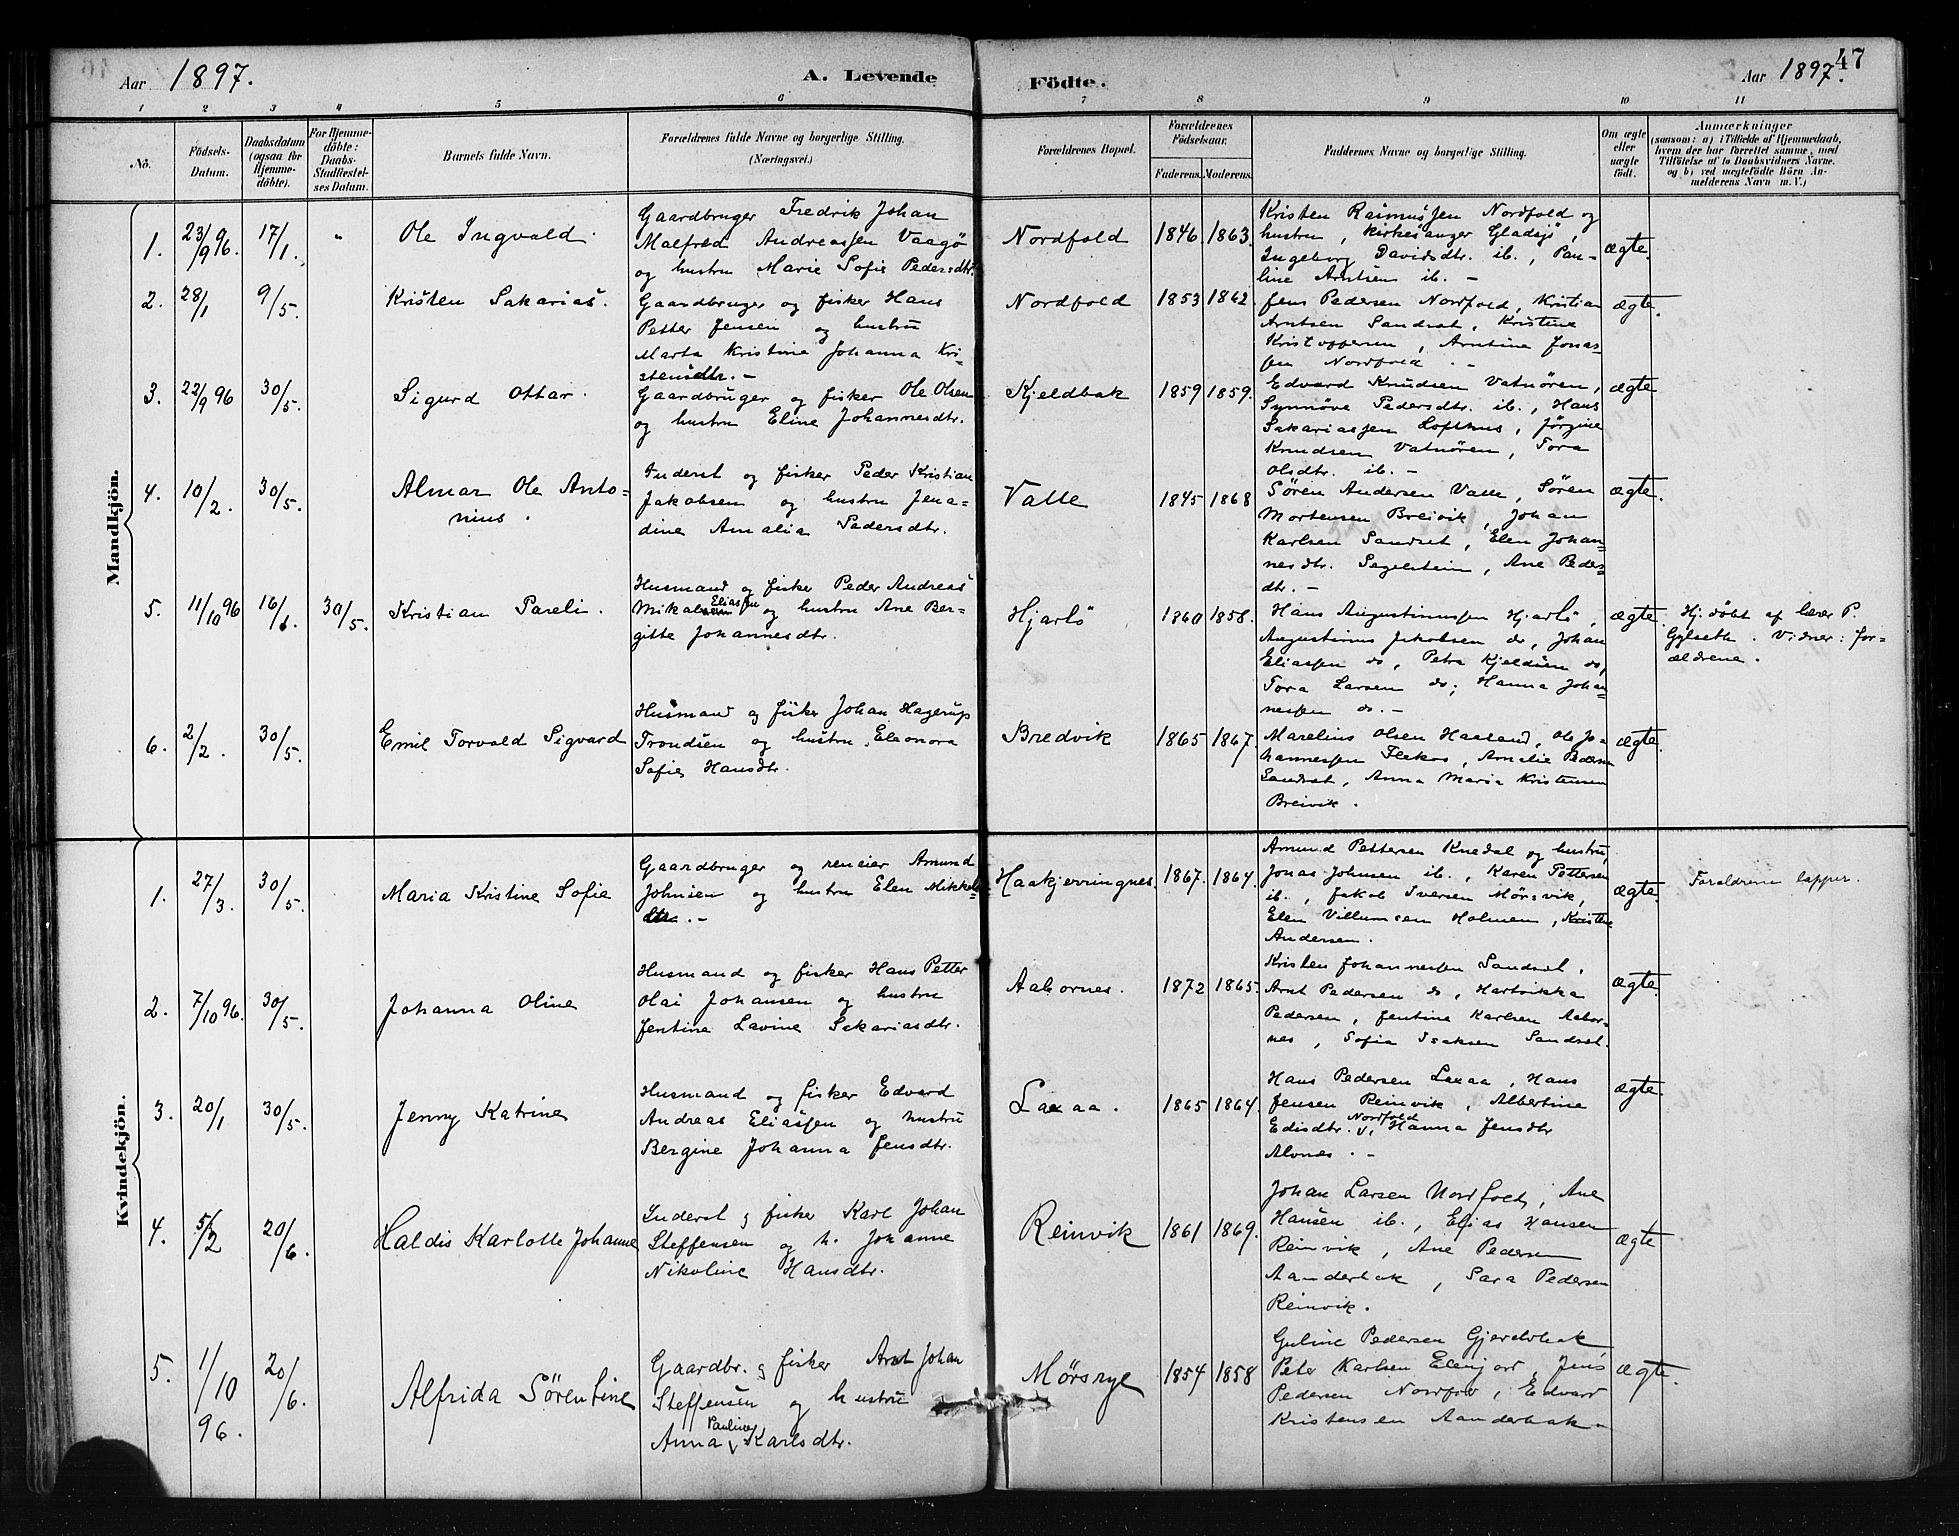 Aar 1897.
A. Levende Födte.
Aar 1897.
47
1 2 3 4 5 6 7 8 9 10 11
No.
Födsels-Datum.
Daabsdatum (ogsaa for Hjemmedöbte).
For Hjemmedöbte: Daabs-Stadfæstelses Datum.
Barnets fulde Navn.
Forældrenes fulde Navne og borgerlige Stilling.
(Næringsvei.)
Forældrenes Bopæl.
Forældrenes Födselsaar.
Faderens. Moderens.
Faddernes Navne og borgerlige Stilling.
Om ægte eller uægte födt.
Anmærkninger
(saasom: a) i Tilfælde af Hjemmedaab,
hvem der har forrettet samme, med
Tilföielse af to Daabsvidners Navne.
og b) ved uægtefödte Börn An-
melderens Navn m. V.)
Mandkjön.
1. 23/9 96. 17/1. "
Ole Ingvald.
Gaardbruger Fredrik Johan
Malfred Andreassen Vaagö
og hustru Marie Sofie Pedersdtr.
Nordfold 1846. 1863.
Kristen Rasmussen Nordfold og
hustru, Kirkesanger Gladsjö,
Ingeborg Davidsdtr. ib., Pau-
line Arntsen ib. -
ægte.
2. 28/1 9/5.
Kristen Sakarias.
Gaardbruger og fisker Hans
Petter Jensen og hustru
Marta Kristine Johanna Kri-
stensdtr. -
Nordfold 1853 1862
Jens Pedersen Nordfold, Kristian
Arntsen Sandset, Kristine
Kristoffersen, Arntine Jonas-
sen Nordfold. -
ægte.
3. 22/9 96 30/5.
Sigurd Ottar.
Gaardbruger og fisker Ole Olsen
og hustru Eline Johannesdtr.
Kjeldbak 1859 1859.
Edvard Knudsen Vatnören,
Synnöve Pedersdtr. ib., Hans
Sakariassen Lofthus, Jörgine
Knudsen Vatnören, Tora
Olsdtr. ib. -
ægte
4. 10/2. 30/5.
Almar Ole Anto-
nius.
Inderst og fisker Peder Kristian
Jakobsen og hustru Jena-
dine Amalia Pedersdtr.
Valle 1845 1868
Sören Andersen Valle, Sören
Mortensen Breivik, Johan
Karlsen Sandset, Elen Johan-
nesdtr. Segelstein, Ane Peders-
dtr. -
ægte.
5. 11/10 96 16/1. 30/5.
Kristian Pareli.
Husmand og fisker Peder Andreas
Mikal Eliassen og hustru Ane Ber-
gitte Johannesdtr.
Hjartö 1860 1858.
Hans Augustinussen Hjartö,
Augustinus Jakobsen do, Johan
Eliassen do, Petra Kjeldsen do,
Tora Larsen do; Hanna Johan-
nessen do. -
ægte.
Hj. döbt af lærer P.
Gylseth. Vidner: for-
ældrene.
6. 2/2. 30/5.
Emil Torvald Sigvard
Husmand og fisker Johan Hagerup
Trondsen og hustru Eleonora
Sofie Hansdtr.
Bredvik 1865 1867.
Marelius Olsen Haasand, Ole Jo-
hannessen Flekos, Amalie Pedersen
Sandset, Anna Maria Kristensen
Breivik.
ægte.
Kvindekjön.
1. 27/3. 30/5.
Maria Kristine Sofie
Gaardbruger og reneier Amund
Johnsen og hustru Elen Mikkels-
dtr. -
Haakjerringnes. 1867. 1864.
Amund Pettersen Knedal og hustru,
Jonas Johnsen ib., Karen Pettersen
ib., Jakob Iversen Mörsvik,
Elen Villumsen Holmen, Kristine
Andersen.
ægte.
Forældrene lapper.
2. 7/10 96. 30/5.
Johanna Oline
Husmand og fisker Hans Petter
Olai Johansen og hustru
Jentine Lavine Sakariasdtr.
Aabornes. 1872 1865.
Kristen Johannessen Sandset,
Arnt Pedersen do, Hartvikka
Pedersen, Jentine Karlsen Aabor-
nes, Sofia Isaksen Sandset.
ægte.
3. 20/1 30/5.
Jenny Katrine
Husmand og fisker Edvard
Andreas Eliassen og hustru
Bergine Johanna Jensdtr.
Laxaa. 1865 1864.
Hans Pedersen Laxaa, Hans
Jensen Reinvik, Albertine
Edisdtr. Nordfold, Hanna Jensdtr
Alvnes. -
ægte.
4. 5/2 20/6.
Haldis Karlotte Johanne
Inderst og fisker Karl Johan
Steffensen og h. Johanne
Nikoline Hansdtr.
Reinvik 1861 1869.
Johan Larsen Nordfold, Ane
Hansen ib., Elias Hansen
Reinvik, Ane Pedersen
Aanderbak, Sara Pedersen
Reinvik.
ægte
5. 1/10 96. 20/6.
Alfrida Sörentine
Gaardbr. og fisker Arnt Johan
Steffensen og hustru
Anna Pauline Karlsdtr.
Mörsrye 1854 1858
Guline Pedersen Gjerdebak
Peter Karlsen Elvnjord, Jens
Pedersen Nordfold, Edvard
Kristensen Aanderbak-
ægte.